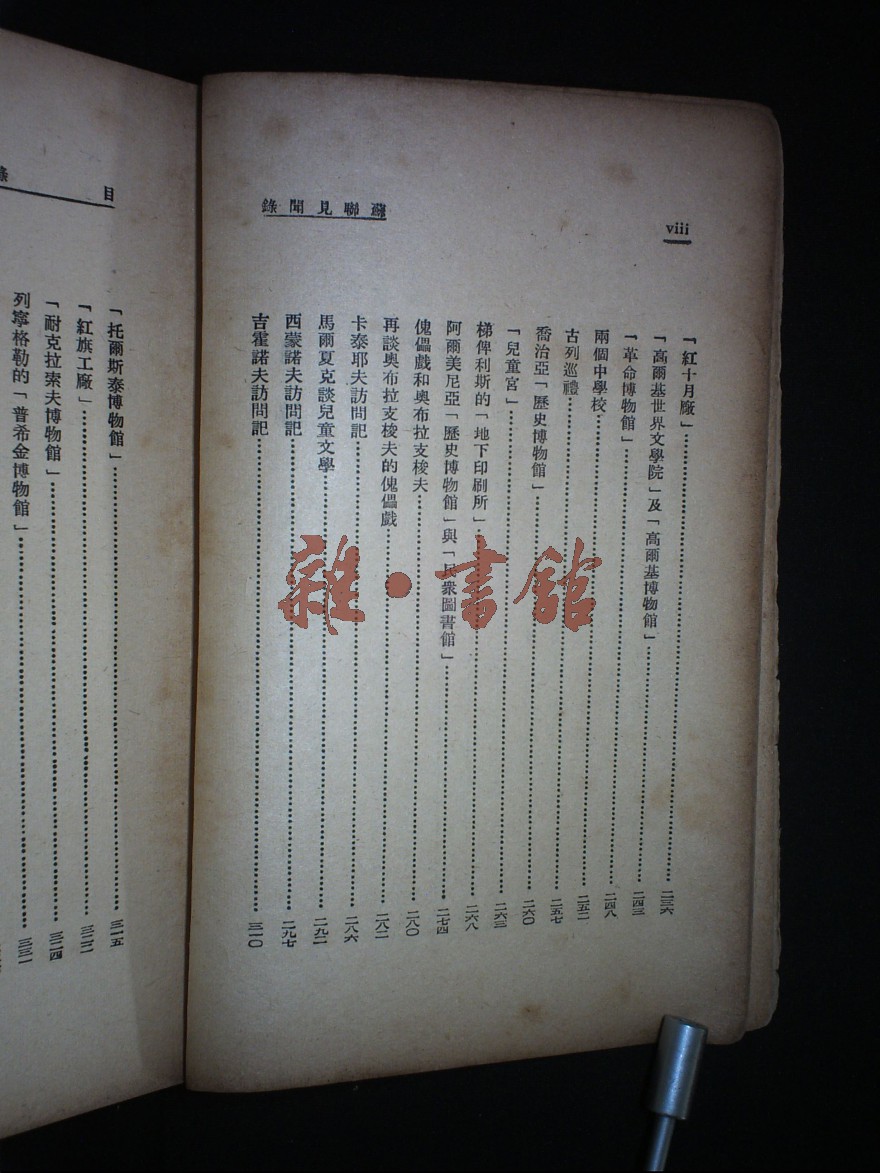 viii
蘇聯見聞錄
「紅十月廠」……二三六
「高爾基世界文學院」及「高爾基博物館」……二四三
「革命博物館」……二四八
兩個中學校……二五二
古列巡禮……二五七
喬治亞「歷史博物館」……二六〇
「兒童宮」……二六三
梯俾利斯的「地下印刷所」……二六八
阿爾美尼亞「歷史博物館」與「民衆圖書館」……二七四
傀儡戲和奧布拉支梭夫……二八〇
再談奧布拉支梭夫的傀儡戲……二八二
卡泰耶夫訪問記……二八六
馬爾夏克談兒童文學……二九二
西蒙諾夫訪問記……二九七
吉霍諾夫訪問記……三一〇
目錄
「托爾斯泰博物館」……三一五
「紅旗工廠」……三二二
「耐克拉索夫博物館」……三二四
列寧格勒的「普希金博物館」……三三一
雜·書館